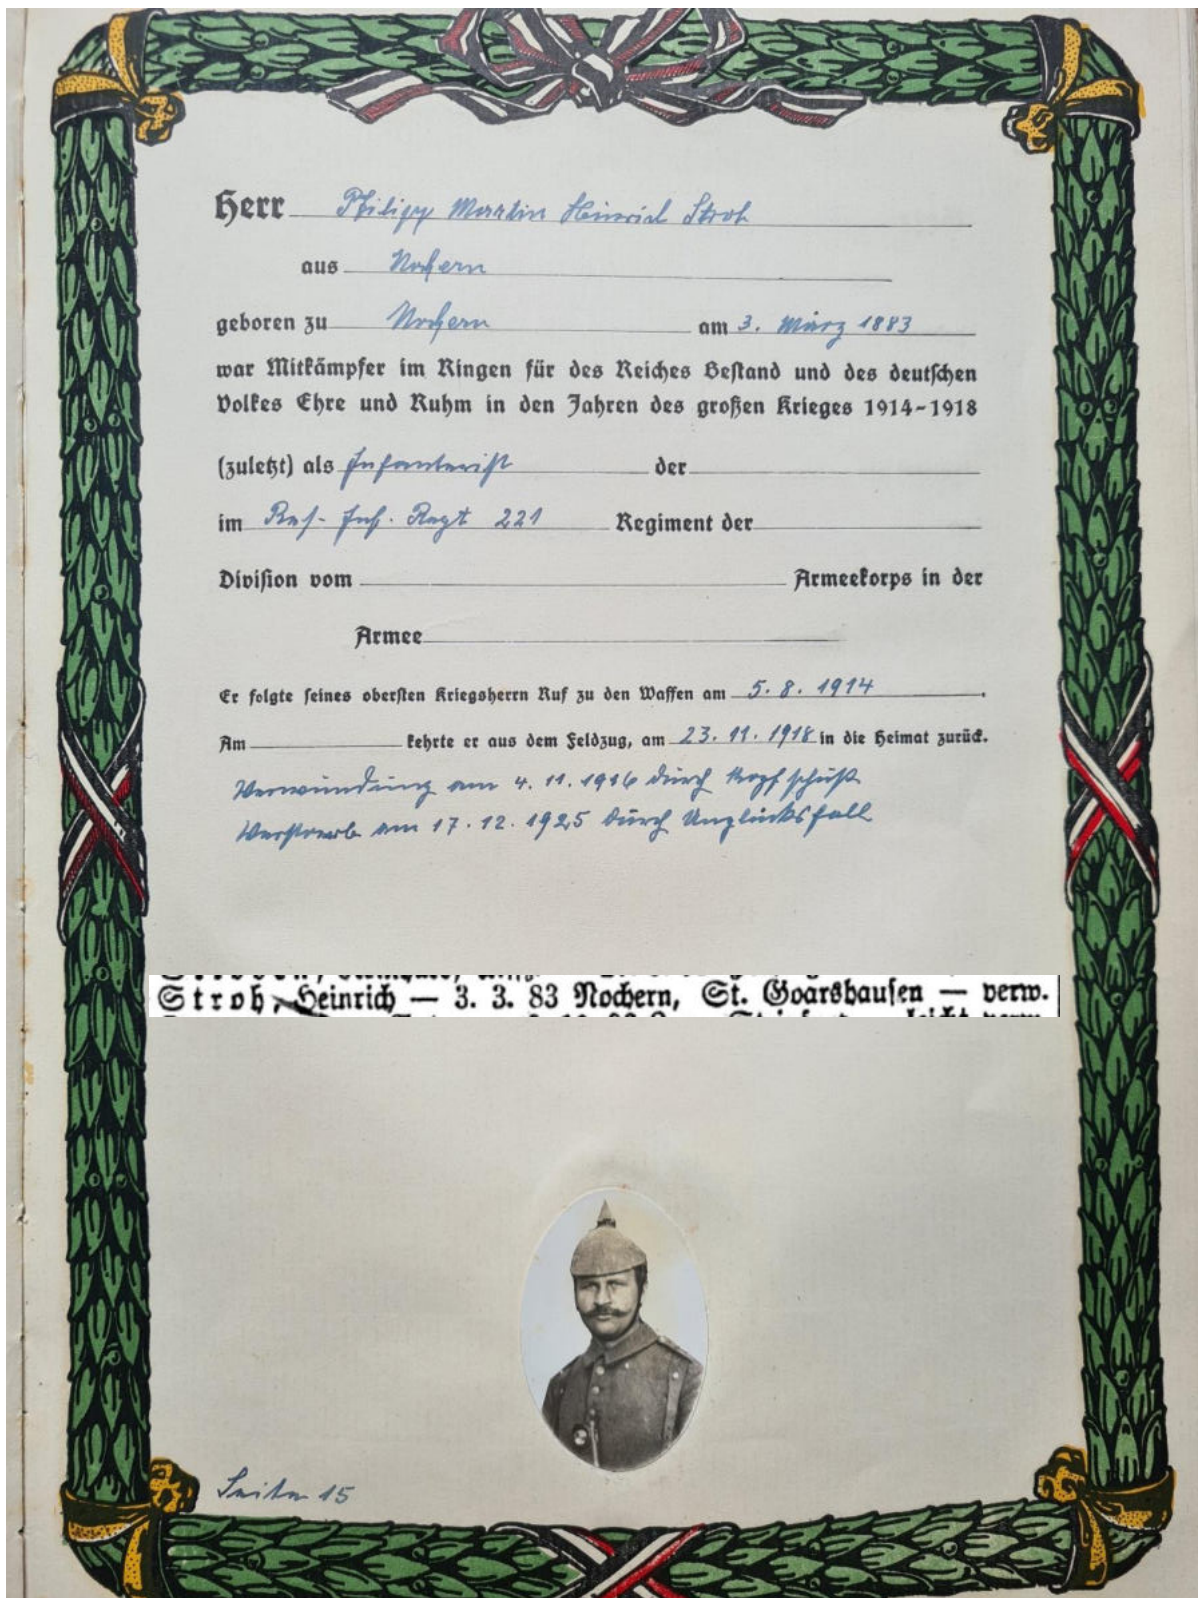 Herr Philipp Martin Heinrich Stroh
aus Nochern
geboren zu Nochern am 3. März 1883
war Mitkämpfer im Ringen für des Reiches Bestand und des deutschen
Volkes Ehre und Ruhm in den Jahren des großen Krieges 1914-1918
(zuletzt) als Infanterist der
im Res. Inf. Regt 221 Regiment der
Division vom Armeekorps in der
Armee
Er folgte seines obersten Kriegsherrn Ruf zu den Waffen am 5. 8. 1914.
Am kehrte er aus dem Feldzug, am 23. 11. 1918 in die Heimat zurück.
Verwundung am 4. 11. 1916 durch Kopfschuß
Verstarb am 17. 12. 1925 durch Unglücksfall
Stroh, Heinrich — 3. 3. 83 Nochern, St. Goarshausen — verw.
Seite 15